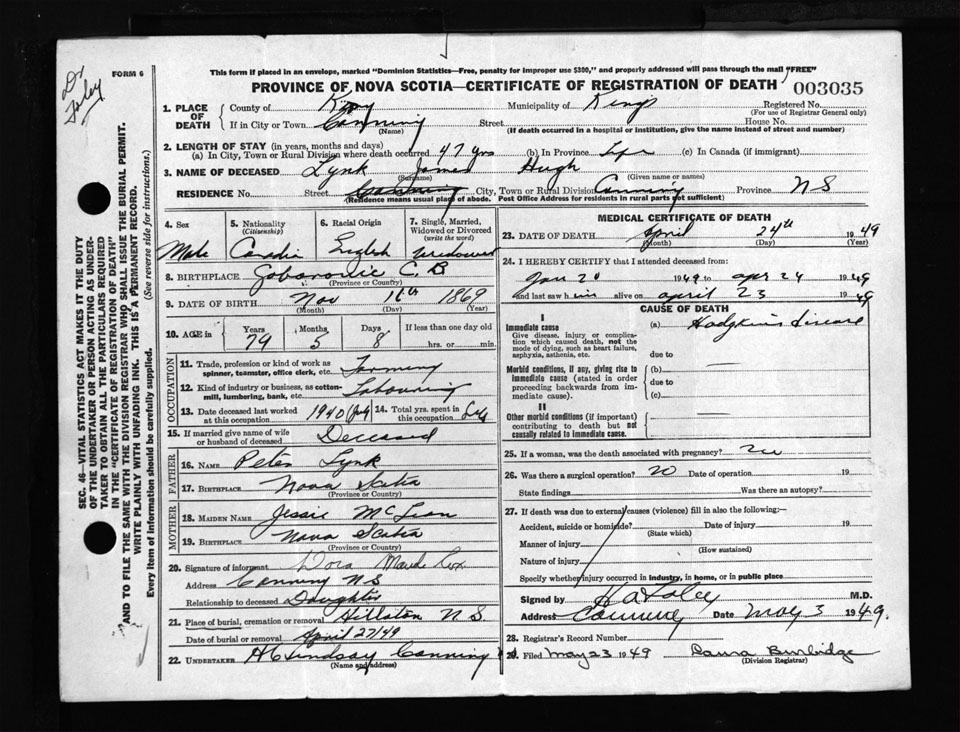 Dr
Foley
FORM 6
This form if placed in an envelope, marked "Dominion Statistics—Free, penalty for improper use $300," and properly addressed will pass through the mail "FREE"
PROVINCE OF NOVA SCOTIA—CERTIFICATE OF REGISTRATION OF DEATH
003035
SEC. 46—VITAL STATISTICS ACT MAKES IT THE DUTY
OF THE UNDERTAKER OR PERSON ACTING AS UNDER-
TAKER TO OBTAIN ALL THE PARTICULARS REQUIRED
IN THE "CERTIFICATE OF REGISTRATION OF DEATH"
AND TO FILE THE SAME WITH THE DIVISION REGISTRAR WHO SHALL ISSUE THE BURIAL PERMIT.
WRITE PLAINLY WITH UNFADING INK. THIS IS A PERMANENT RECORD.
Every item of information should be carefully supplied. (See reverse side for instructions.)
1. PLACE OF DEATH
County of Kings Municipality of Kings Registered No.
(For use of Registrar General only)
If in City or Town Canning Street House No.
(Name) (If death occurred in a hospital or institution, give the name instead of street and number)
2. LENGTH OF STAY (in years, months and days)
(a) In City, Town or Rural Division where death occurred 47 yrs (b) In Province Life (c) In Canada (if immigrant)
3. NAME OF DECEASED Lynk James Hugh
(Surname) (Given name or names)
RESIDENCE No. Street Canning City, Town or Rural Division Canning Province N S
(Residence means usual place of abode. Post Office Address for residents in rural parts not sufficient)
4. Sex 5. Nationality (Citizenship) 6. Racial Origin 7. Single, Married, Widowed or Divorced (write the word)
Male English Widowed
8. BIRTHPLACE Gabarouse C. B
(Province or Country)
9. DATE OF BIRTH Nov 16th 1869
(Month) (Day) (Year)
10. AGE in Years Months Days If less than one day old
79 5 8 hrs. or min.
OCCUPATION
11. Trade, profession or kind of work as spinner, teamster, office clerk, etc. Farming
12. Kind of industry or business, as cotton-mill, lumbering, bank, etc. Labouring
13. Date deceased last worked at this occupation 1940 (July) 14. Total yrs. spent in this occupation Life
15. If married give name of wife or husband of deceased Deceased
FATHER
16. NAME Peter Lynk
17. BIRTHPLACE Nova Scotia
(Province or Country)
MOTHER
18. MAIDEN NAME Jessie McLean
19. BIRTHPLACE Nova Scotia
(Province or Country)
20. Signature of informant Dora Maude Cox
Address Canning N S
Relationship to deceased Daughter
21. Place of burial, cremation or removal Hillaton N S
Date of burial or removal April 27/49
22. UNDERTAKER H C Lindsay Canning
(Name and address)
MEDICAL CERTIFICATE OF DEATH
23. DATE OF DEATH April 24th 1949
(Month) (Day) (Year)
24. I HEREBY CERTIFY that I attended deceased from:
Jan 20 1949 to apr 24 1949
and last saw him alive on april 23 1949
CAUSE OF DEATH
I
Immediate cause (a) Hodgkins disease
Give disease, injury or complication which caused death, not the mode of dying, such as heart failure, asphyxia, asthenia, etc.
due to
Morbid conditions, if any, giving rise to immediate cause (stated in order proceeding backwards from immediate cause).
(b)
due to
(c)
II
Other morbid conditions (if important) contributing to death but not causally related to immediate cause.
25. If a woman, was the death associated with pregnancy?
26. Was there a surgical operation? no Date of operation 19
State findings Was there an autopsy?
27. If death was due to external causes (violence) fill in also the following:—
Accident, suicide or homicide? Date of injury 19
(State which)
Manner of injury
(How sustained)
Nature of injury
Specify whether injury occurred in industry, in home, or in public place
Signed by H a Foley M.D.
Address Canning Date May 3 1949.
28. Registrar's Record Number
29. Filed May 23 1949 Laura Burbidge
(Division Registrar)